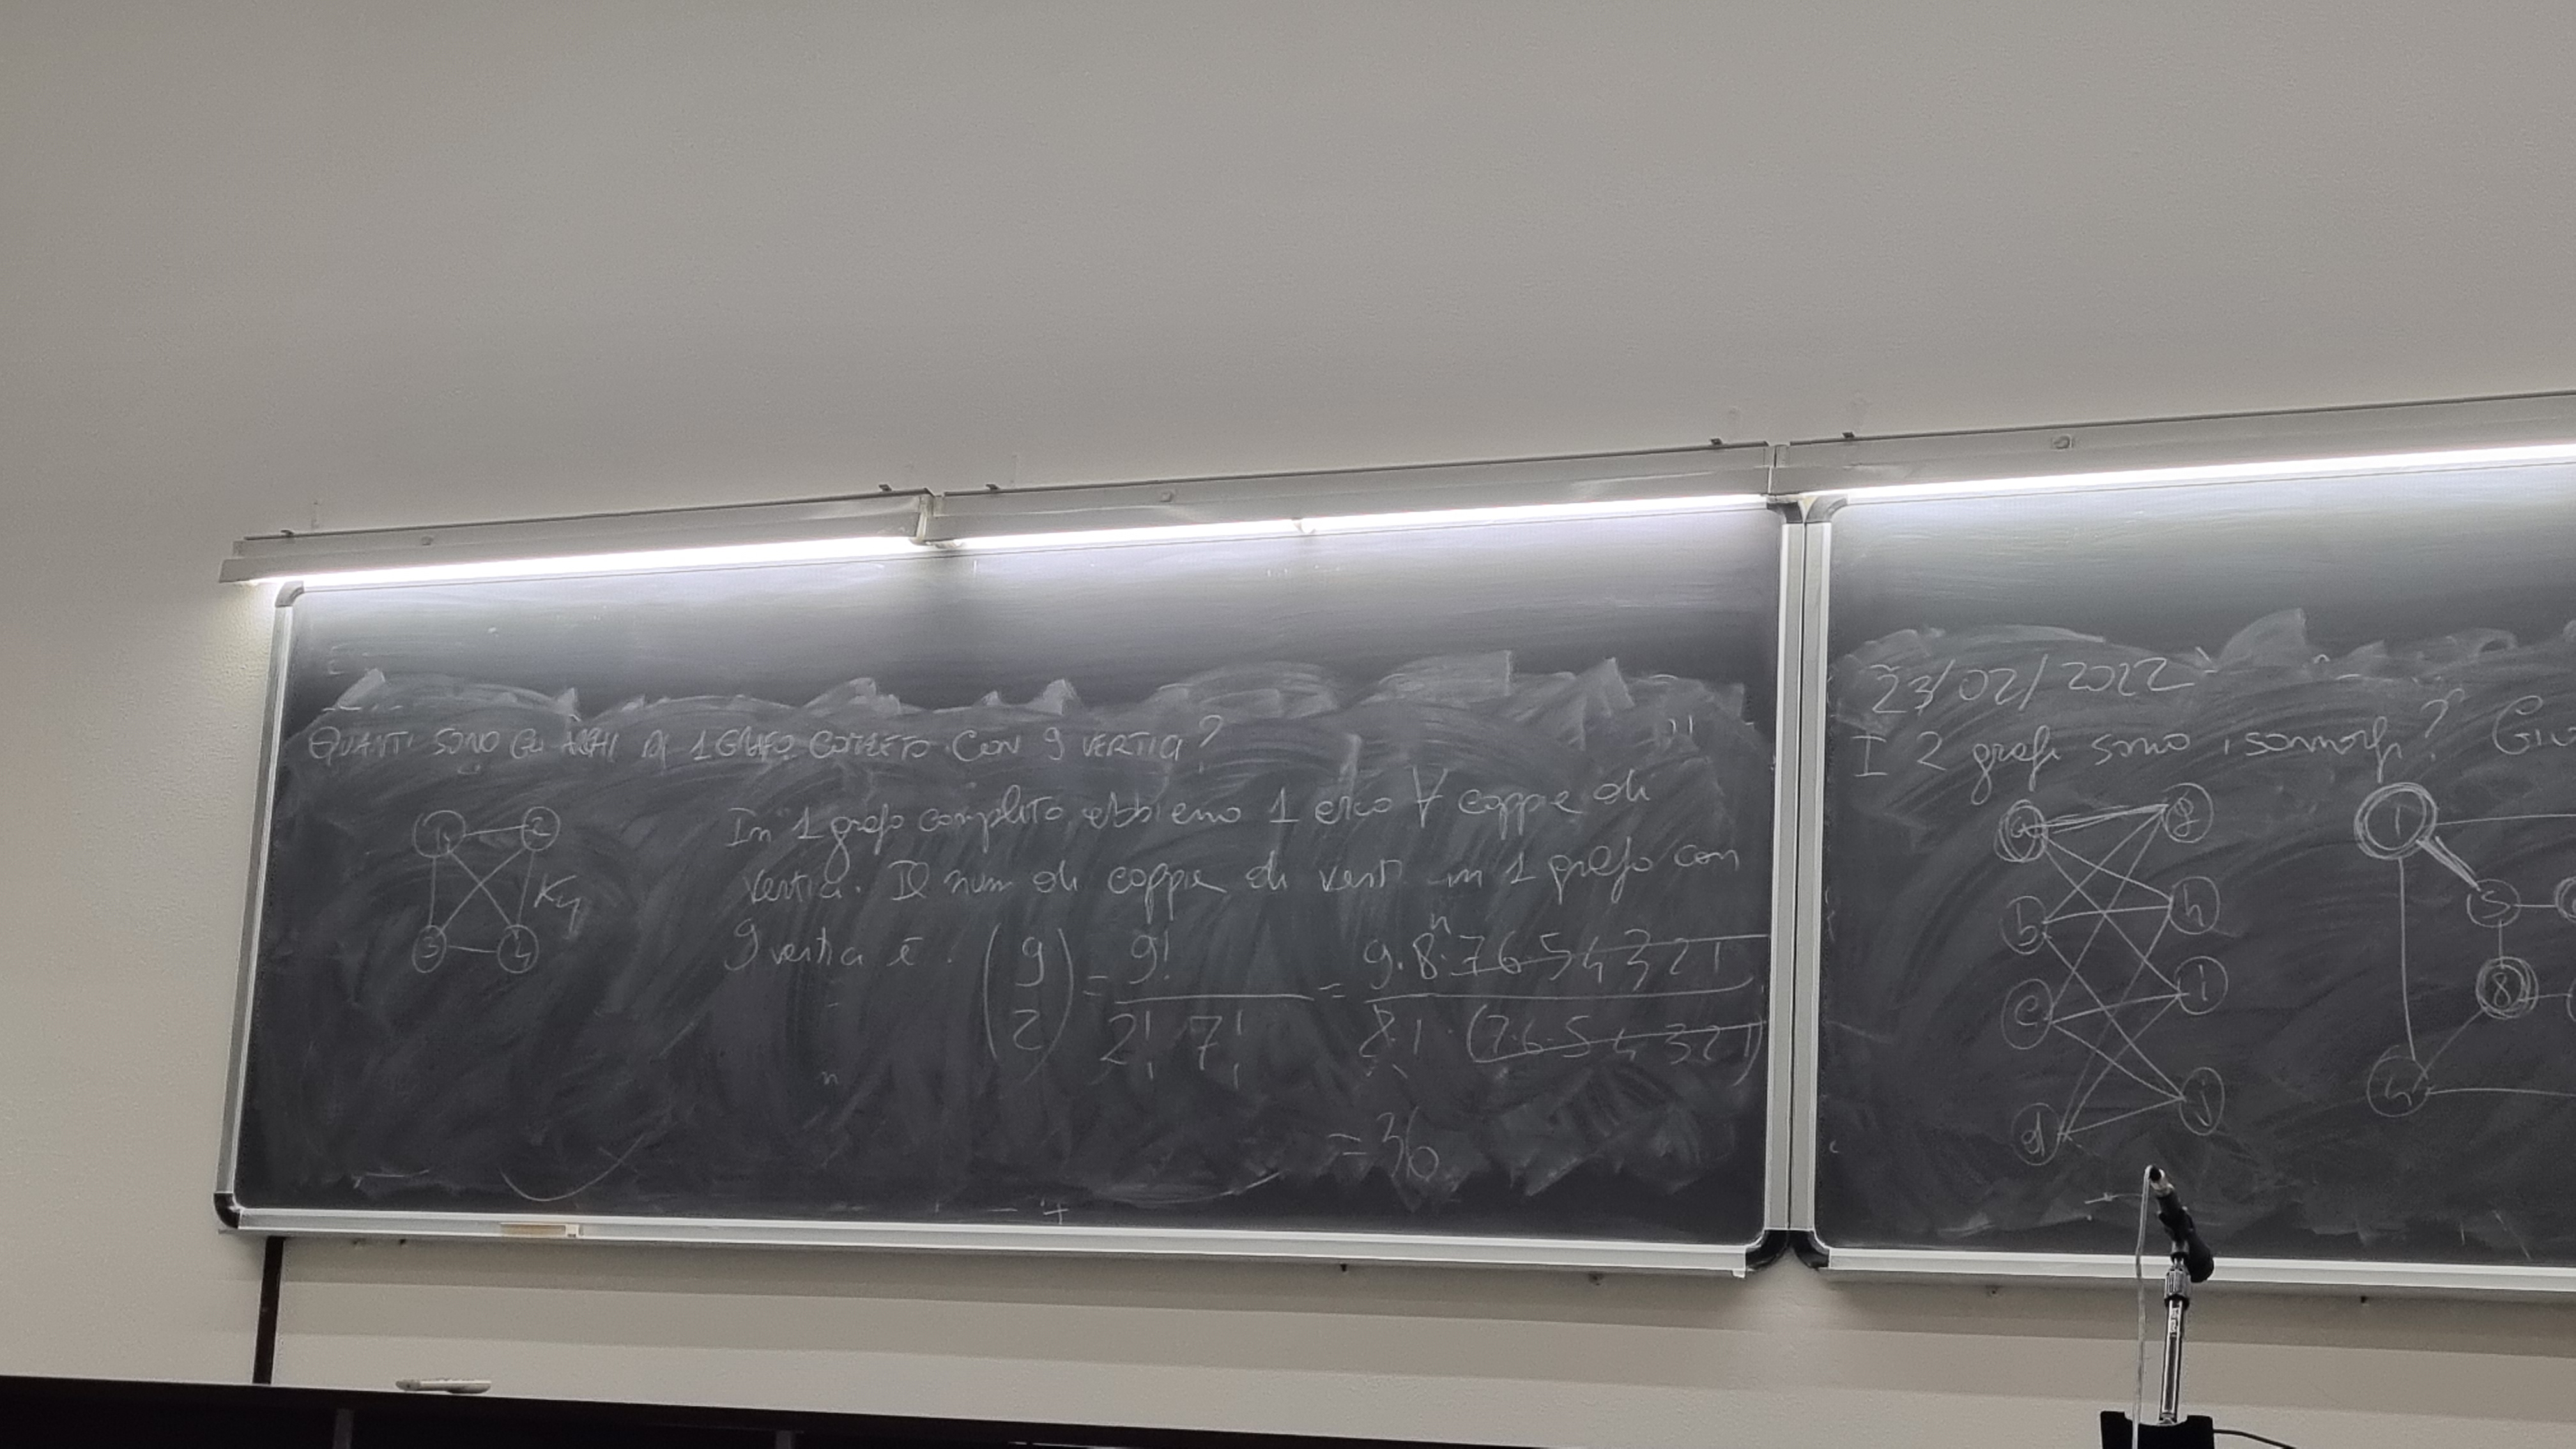 QUANTI SONO GLI ARCHI DI 1 GRAFO COMPLETO CON 9 VERTICI?
1 2
K4
3 4
In 1 grafo completo abbiamo 1 arco ∀ coppie di
vertici. Il num di coppie di vert in 1 grafo con
9 vertici è : (9 2) = 9! / 2! 7! = 9·8·7 6 5 4 3 2 1 / 2·1·(7·6·5 4 3 2 1)
= 36
23/02/2022
I 2 grafi sono isomorfi? Giu
a g 1
b h 5
c i 8
d j 4